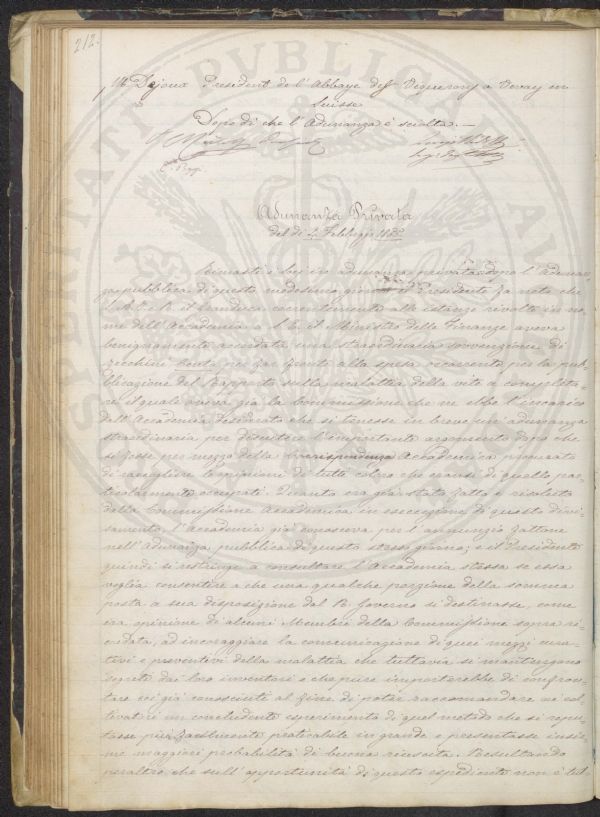 212.
M. Dejoux President de l'Abbaye des Vignerons a Vevay en
Suisse
Dopo di che l'Adunanza è sciolta.—
C. Ridolfi
Adunanza Privata
del dì 4. Febbrajo
Rimasti i Soci in adunanza privata dopo l'Adunan-
za pubblica di questo medesimo giorno il Presidente fa nota che
S.A.I. e R. il Granduca coerentemente alle istanze rivolte in no-
me dell'Accademia a S.E. il Ministro delle Finanze aveva
benignamente accordata una straordinaria sovvenzione di
zecchini cento per far fronte alla spesa occorrente per la pub-
blicazione del Rapporto sulla malattia della vite a completa-
re il quale aveva già la Commissione che ne ebbe l'incarico
dall'Accademia desiderato che si tenesse in breve un'adunanza
straordinaria per discutere l'importante argomento dopo che
si fosse per mezzo della Corrispondenza Accademica procurato
di raccogliere le opinioni di tutti coloro che eransi di quello par-
ticolarmente occupati. Quanto era già stato fatto e risoluto
dalla Commissione Accademica in esecuzione di questo divi-
samento, l'Accademia già conosceva per l'annunzio fattone
nell'Adunanza pubblica di questo stesso giorno; e il Presidente
quindi si restringe a consultare l'Accademia stessa se essa
voglia consentire a che una qualche porzione della somma
posta a sua disposizione dal R. Governo si destinasse, come
era opinione di alcuni Membri della Commissione sopra ri-
cordata, ad incoraggiare la comunicazione di quei mezzi cura-
tivi e preventivi della malattia che tuttavia si mantengono
segreti dai loro inventori e che pure importerebbe di confron-
tare coi già conosciuti al fine di poter raccomandare ai col-
tivatori un concludente esperimento di quel metodo che si repu-
tasse più facilmente praticabile in grande e presentasse insie-
me maggiori probabilità di buona riuscita. Resultando
peraltro che sull'opportunità di questo espediente non è tut-